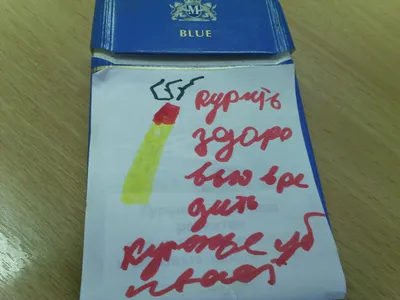 M
BLUE
курить
здаро
вью вре
дить
Куренье уб
ивает